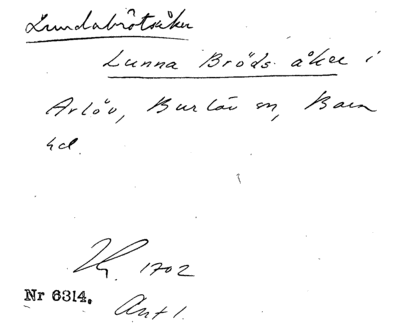 Lundabrötsåker
Lunna Bröds åker i
Arlöv, Burlöv sn, Bara
hd.
1702
Nr 6314. Ant 1.